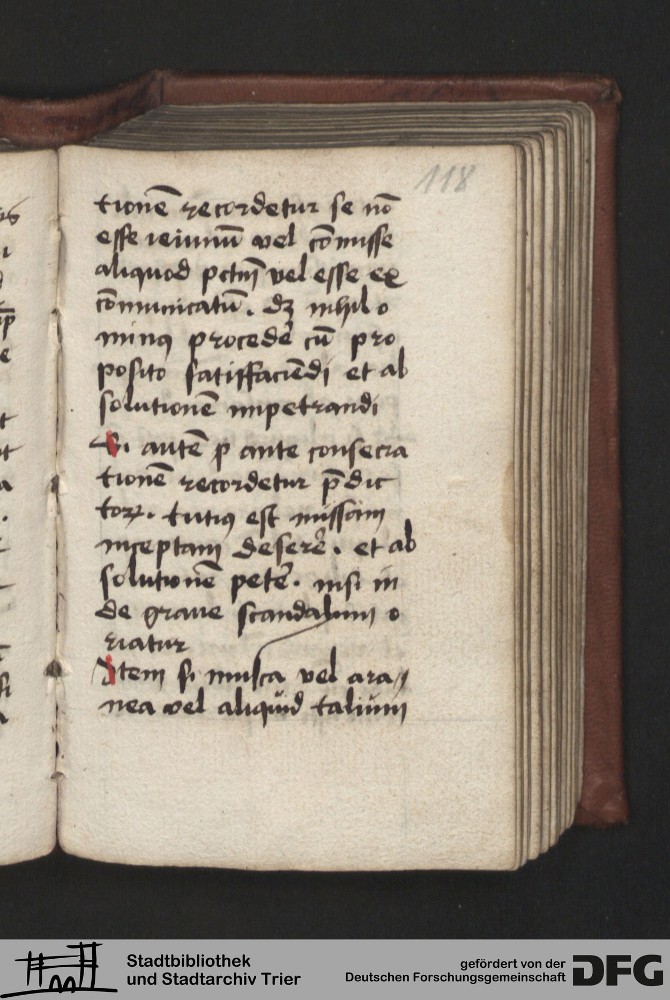 118
tionē recordetur se nō
esse ieiunū vel cōmisse
aliquod pctm̄ vel esse ex
cōmunicatū. dꝫ nihilo
minꝰ procedē cū pro
posito satisfaciēdi et ab
solutionē impetrandi
Si autē p ante consecra
tionē recordetur p̄dic
toꝝ. tutiꝰ est missam
inceptam deserē. et ab
solutionē petē. nisi in
de graue scandalum o
riatur
Item si musca vel ara
nea vel aliquid talium
Stadtbibliothek
und Stadtarchiv Trier
gefördert von der
Deutschen Forschungsgemeinschaft
DFG